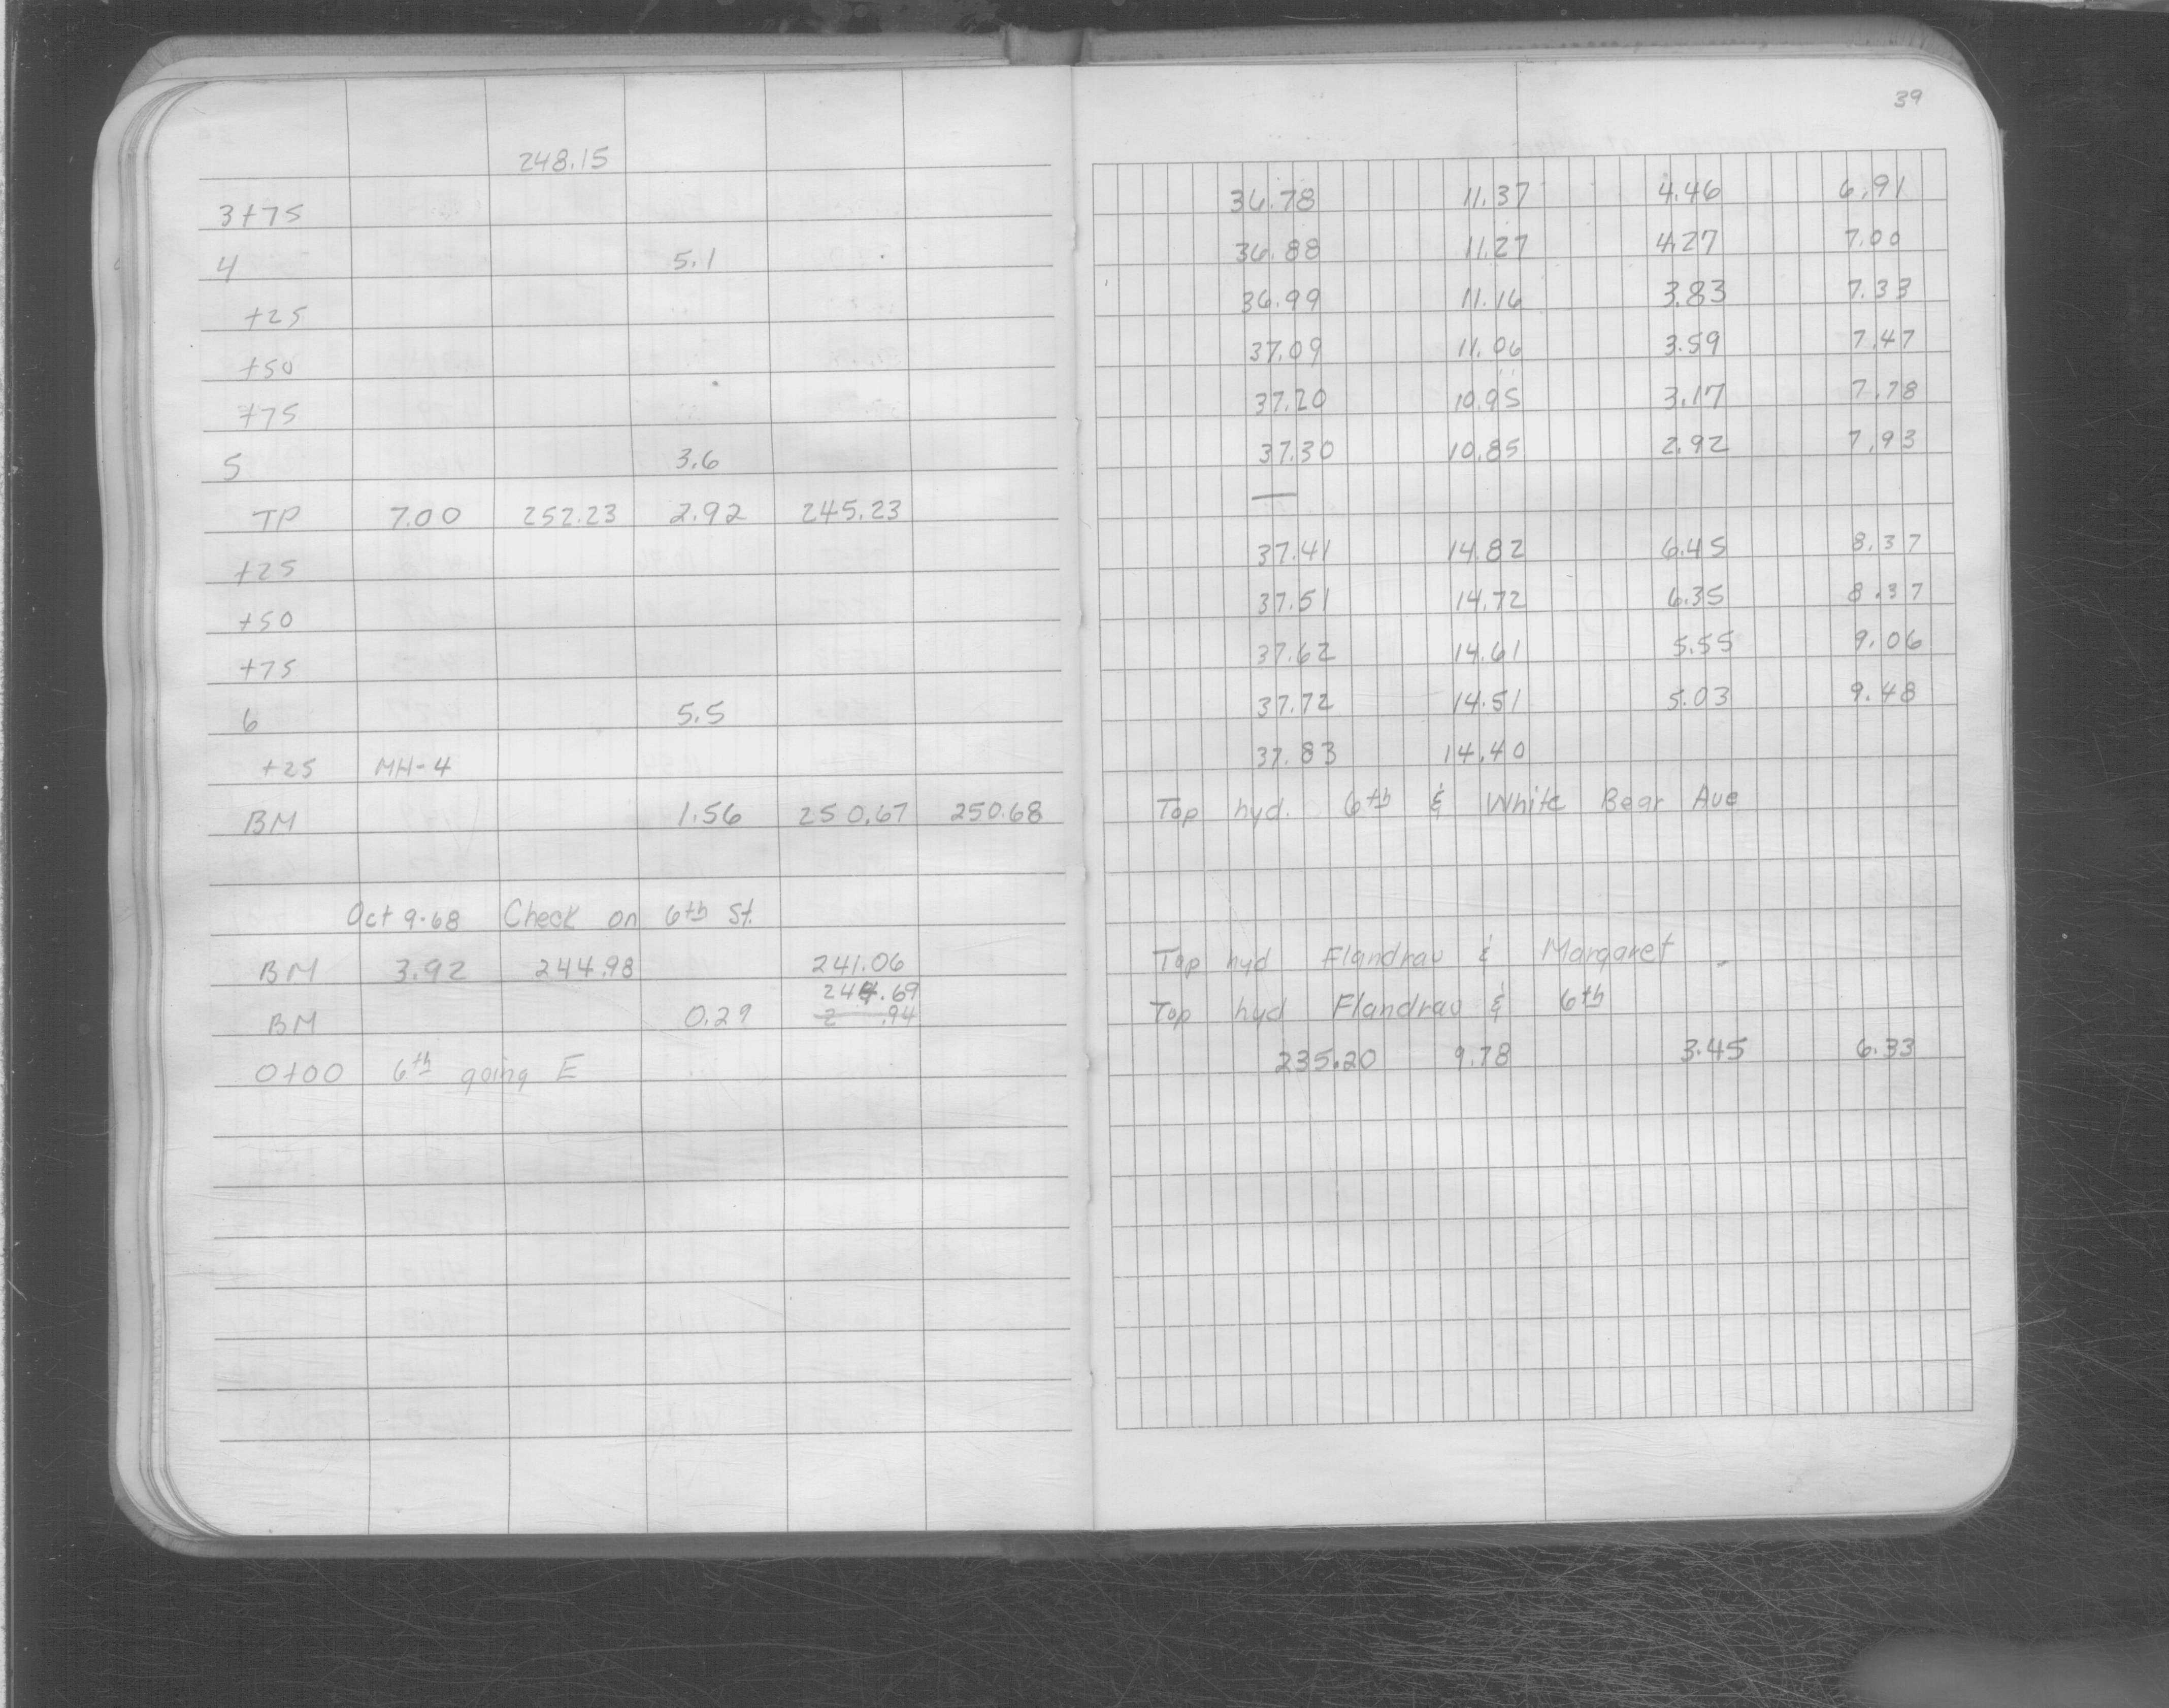 39
248.15
3+75 36.78 11.37 4.46 6.91
4 5.1 36.88 11.27 4.27 7.00
+25 36.99 11.16 3.83 7.33
+50 37.09 11.06 3.59 7.47
+75 37.20 10.95 3.17 7.78
5 3.6 37.30 10.85 2.92 7.93
TP 7.00 252.23 2.92 245.23 —
+25 37.41 14.82 6.45 8.37
+50 37.51 14.72 6.35 8.37
+75 37.62 14.61 5.55 9.06
6 5.5 37.72 14.51 5.03 9.48
+25 MH-4 37.83 14.40
BM 1.56 250.67 250.68 Top hyd. 6th & White Bear Ave
Oct 9-68 Check on 6th St.
BM 3.92 244.98 241.06 Top hyd Flandrau & Margaret
244.69
BM 0.29 2 .94 Top hyd Flandrau & 6th
0+00 6th going E 235.20 9.78 3.45 6.33